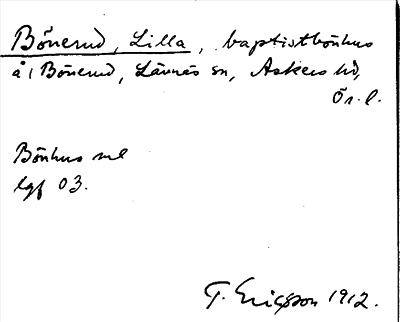 Bönerud, Lilla, baptistbönhus
å/ Bönerud, Lännäs sn, Askers hd,
Ör. l.
Bönhus ml
lgf 03.
T. Ericsson 1912.